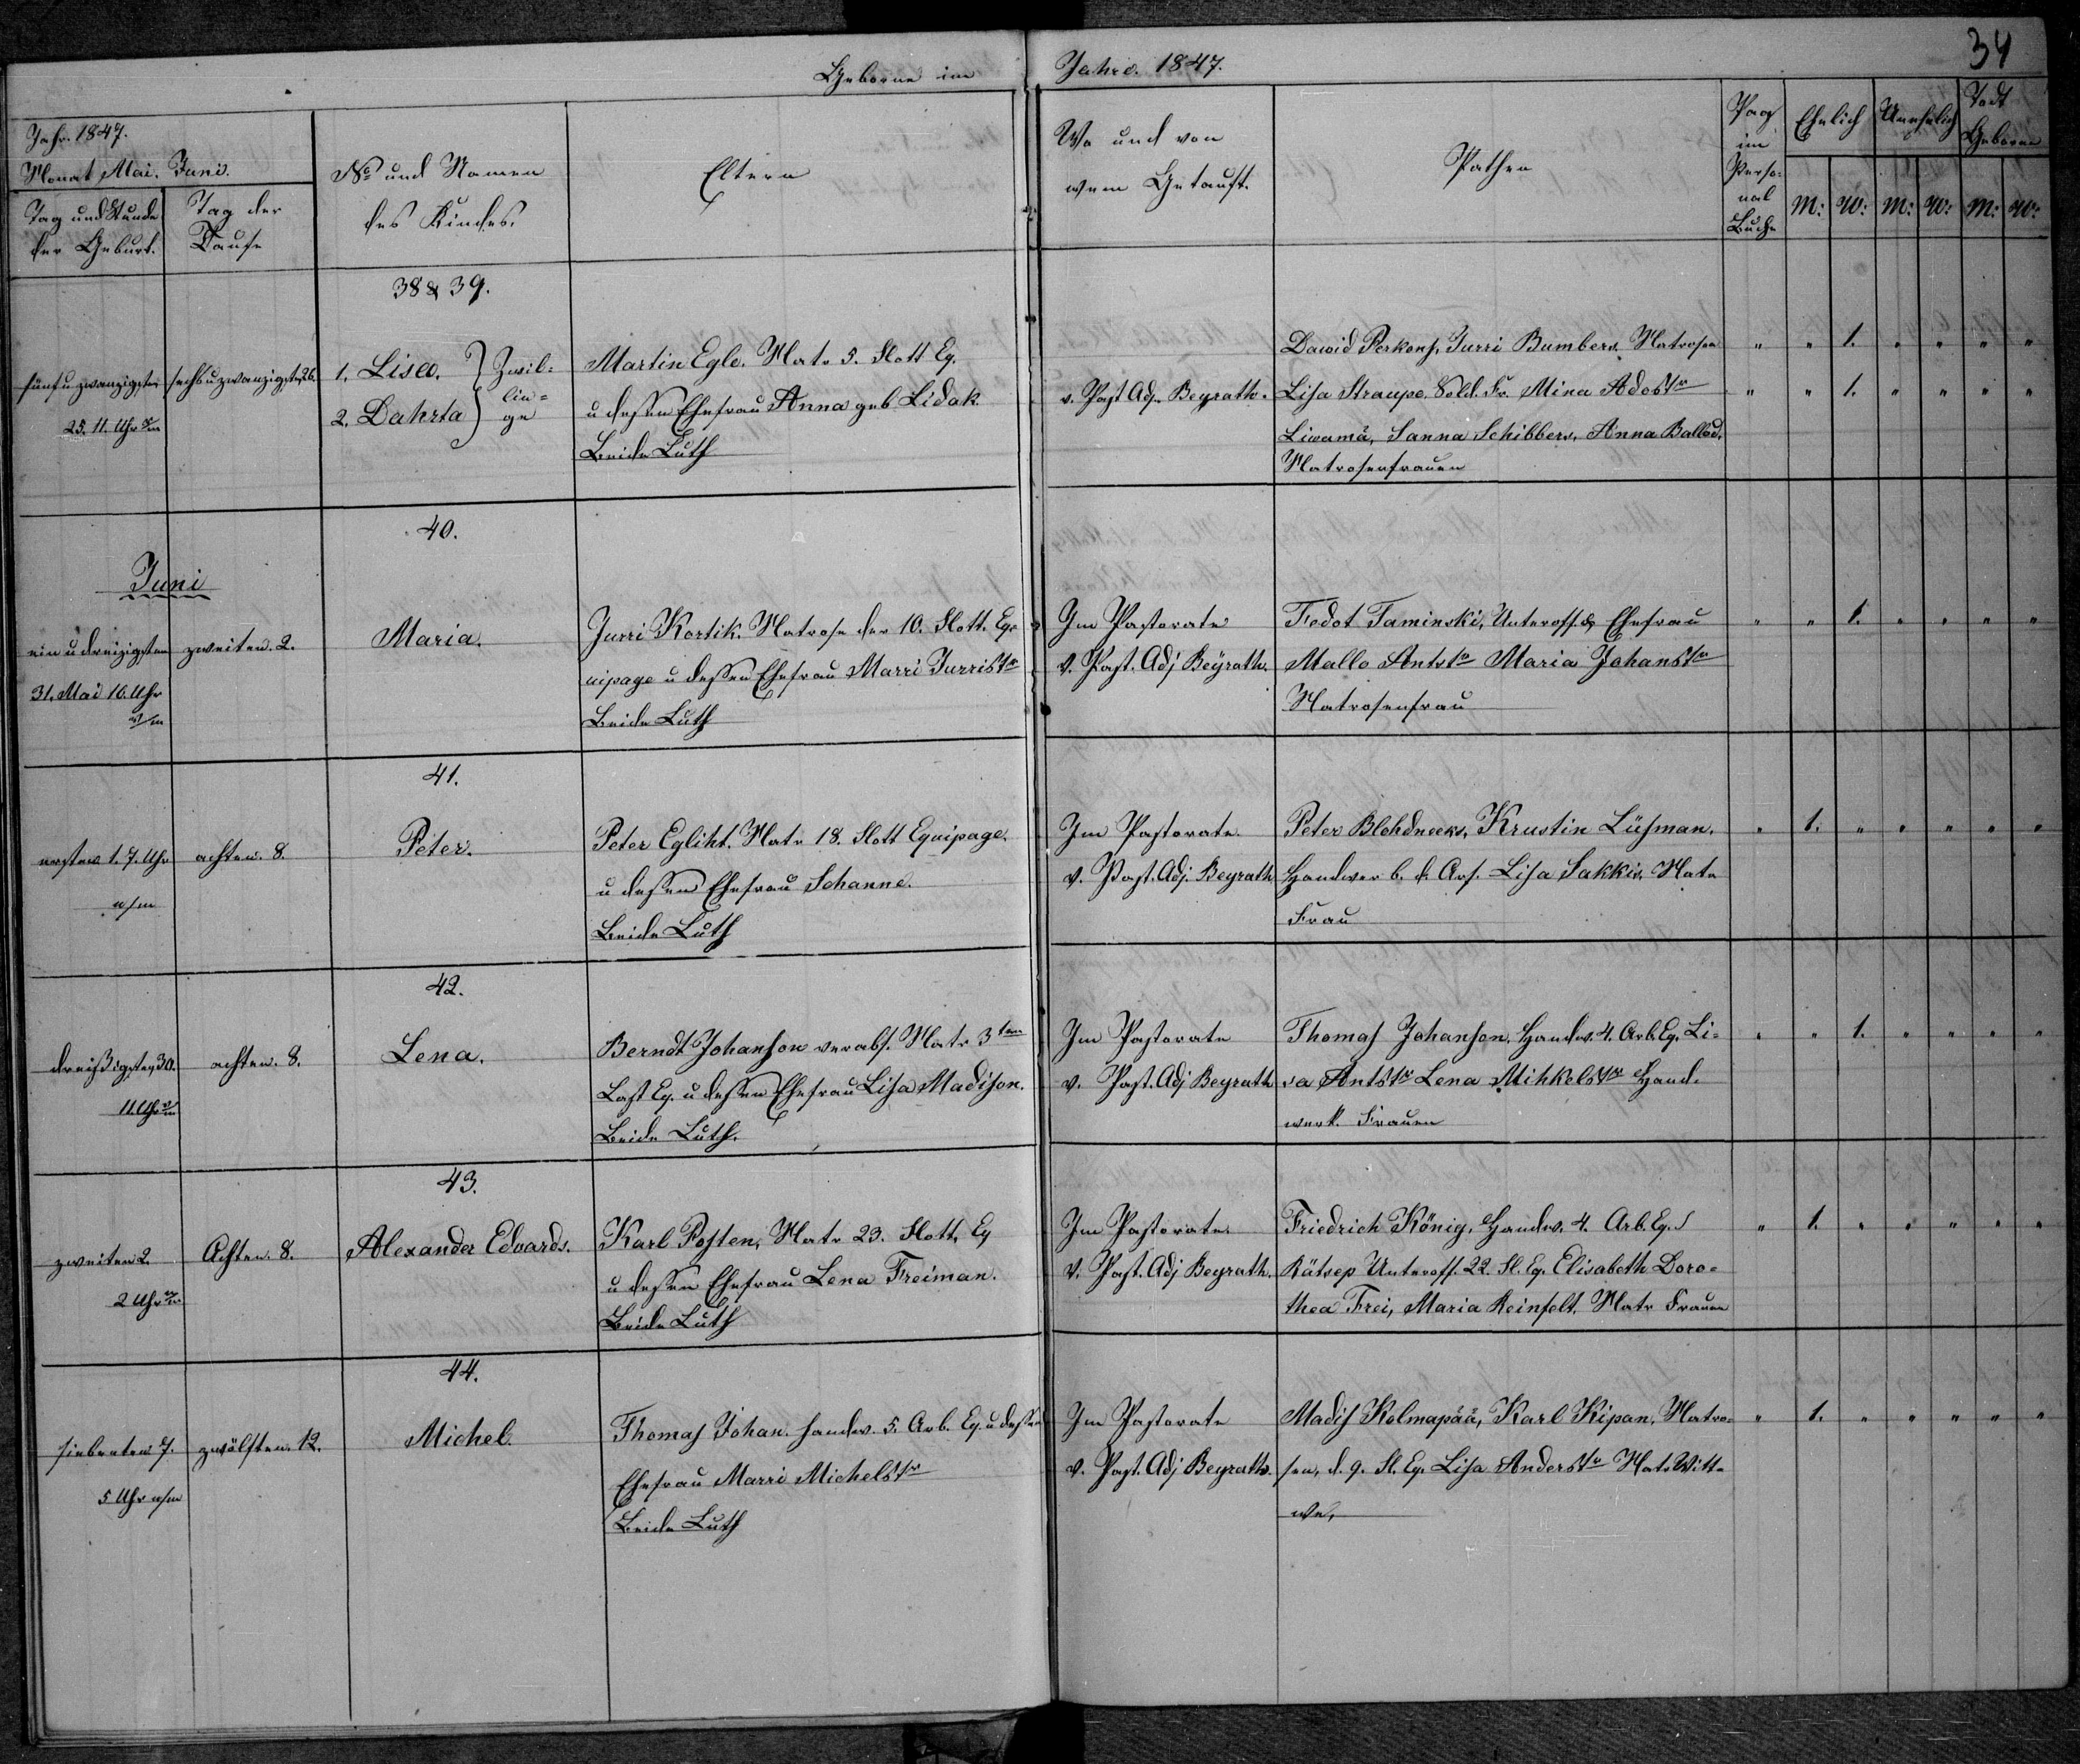 Geborne im Jahre. 1847.
34
Jahr. 1847.
Monat Mai. Juni.
Tag und Stunde der Geburt.
Tag der Taufe
No und Namen des Kindes.
Eltern
Wo und von wem Getauft.
Pathen
Pag im Personal Buche
Ehelich
Unehelich
Todt Geborne
M: W: M: W: M: W:
38 & 39.
fünf u zwanzigsten
25. 11. Uhr
sechs u zwanzigsten 26.
1. Lise. } Zwil=
2. Dahrta } lin=
ge
Martin Egle. Matr 5. Flott Eq.
u dessen Ehefrau Anna geb Lidak
Beide Luth
v. Past. Adj. Beyrath.
Dawid Perkons, Jurri Bumbers. Matrosen
Lisa Straupe. Sold. Fr. Mina Adostr
Liwamä, Sanna Schibbers, Anna Ballod,
Matrosenfrauen
" " 1. " " " "
" " 1. " " " "
40.
Juni
ein u dreizigsten
31. Mai 10. Uhr
v/m
zweiten. 2.
Maria.
Jurri Kortik. Matrose der 10. Flott. Eq=
uipage u dessen Ehefrau Marri Jurristr
Beide Luth
Im Pastorate
v. Past. Adj Beÿrath.
Fedot Taminski, Unteroff. & Ehefrau
Mallo Antstr Maria Johanstr
Matrosenfrau
" " 1. " " " "
41.
ersten 1. 7. Uhr
n/m
achten. 8.
Peter.
Peter Egliht. Matr 18. Flott Equipage.
u dessen Ehefrau Schanne.
Beide Luth
Im Pastorate
v. Past. Adj. Beyrath
Peter Blohdneeks, Krustin Lühsman,
Handwer b. d. Ars. Lisa Sakkis, Matr
Frau
" 1. " " " " "
42.
dreißigsten 30.
11. Uhr
achten. 8.
Lena.
Berndt Johanson verabs. Matr 3ten
Last Eq. u dessen Ehefrau Lisa Madison.
Beide Luth.
Im Pastorate
v. Past. Adj Beyrath
Thomas Johanson. Handw. 4. Arb. Eq. Li=
sa Antstr Lena Mihkelstr Hand=
werk. Frauen
" " 1. " " " "
43.
zweiten 2.
2 Uhr
Achten. 8.
Alexander Edoards.
Karl Posten, Matr 23. Flott, Eq
u dessen Ehefrau Lena Freiman.
Beide Luth
Im Pastorate.
v. Past. Adj Beyrath.
Friedrich König, Handw. 4. Arb. Eq.
Rätsep Unteroff. 22. Fl. Eq. Elisabeth Doro=
thea Frei, Maria Reinfelt. Matr Frauen
" 1. " " " " "
44.
siebenten 7.
5 Uhr n/m
zwölften. 12.
Michel.
Thomas Johan. Handw. 5. Arb. Eq. u dessen
Ehefrau Marri Michelstr
Beide Luth
Im Pastorate
v. Past. Adj Beyrath.
Madis Kolmapää, Karl Kipan, Matro=
sen, d. 9. Fl. Eq. Lisa Anderstr Matr Witt=
we,
" 1. " " " " "